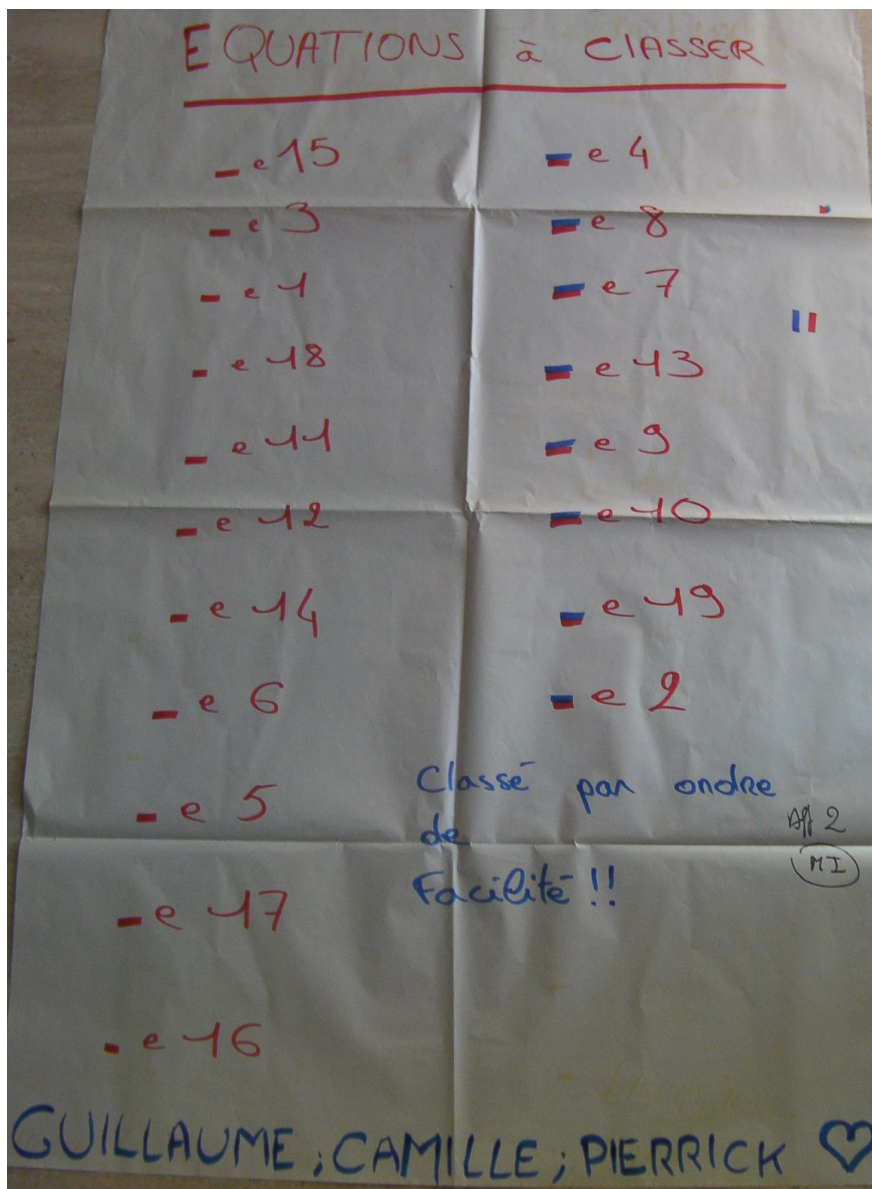 EQUATIONS à CLASSER
- e 15
- e 3
- e 1
- e 18
- e 11
- e 12
- e 14
- e 6
- e 5
- e 17
- e 16
- e 4
- e 8
- e 7
- e 13
- e 9
- e 10
- e 19
- e 2
Classé par ordre
de
Facilité !!
Aff 2
MI
GUILLAUME ; CAMILLE ; PIERRICK ♡